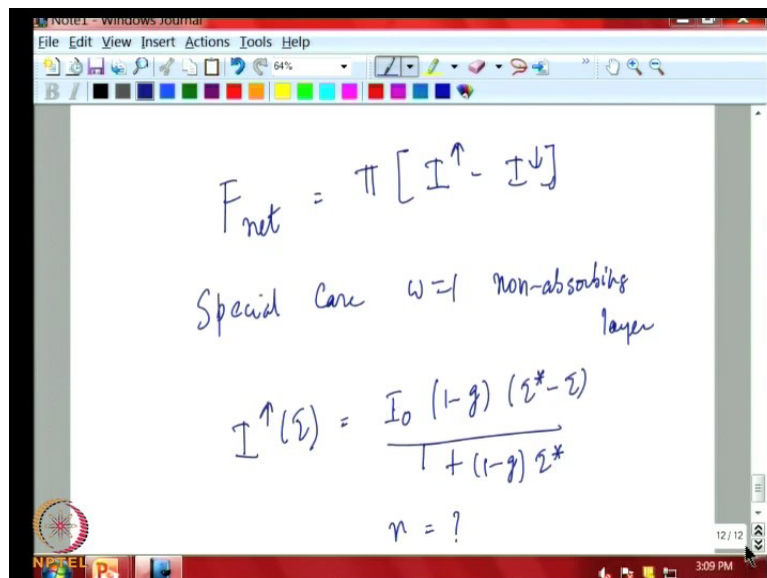 Note1 - Windows Journal
File Edit View Insert Actions Tools Help
64%
B I
F_net = π [I↑ - I↓]
Special Case ω=1 non-absorbing
layer
I↑(τ) = I₀ (1-g) (τ* - τ)
1 + (1-g) τ*
r = ?
12 / 12
NPTEL
3:09 PM